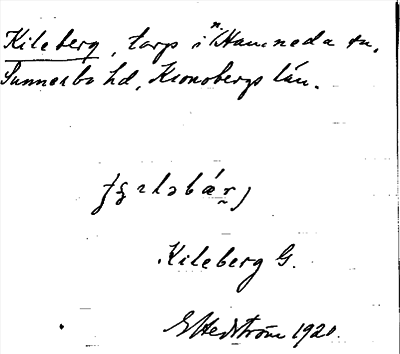 Kileberg, torp i Hamneda sn,
Sunnerbo hd, Kronobergs län.
Kileberg G.
E Hedström 1920.